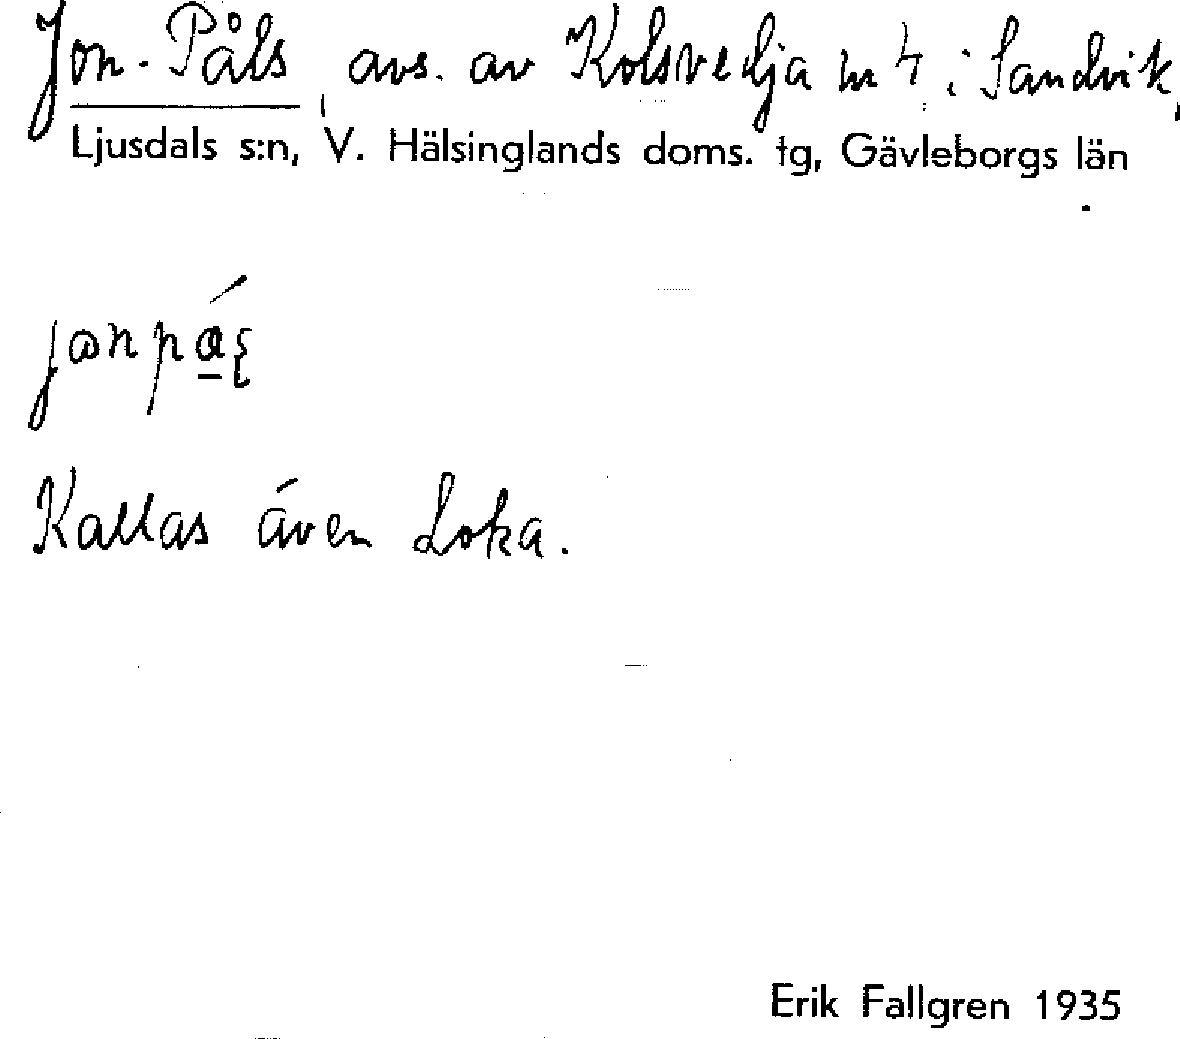 Jon-Påls, avs. av Kolsvedja nr 4 i Sandvik,
Ljusdals s:n, V. Hälsinglands doms. tg, Gävleborgs län
Kallas även Loka.
Erik Fallgren 1935